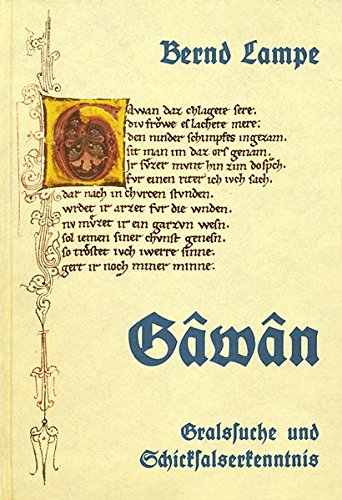 Bernd Lampe
GAwan daz chlagete sere.
div frŏwe es lachete mere.
den ninder schimpfes ingezam.
sit man im daz ors genam.
Ir svzer mvnt hin zim do spͣch.
fvr einen riter ich ivch sach.
dar nach in chvrcen stvnden.
wrdet ir arzet fvr die wnden.
nv mvzet ir ein garzvn wesn.
sol iemen siner chvnst genesn.
so tröstet ivch iwerre sinne.
gert ir noch miner minne.
Gâwân
Gralssuche und
Schicksalserkenntnis